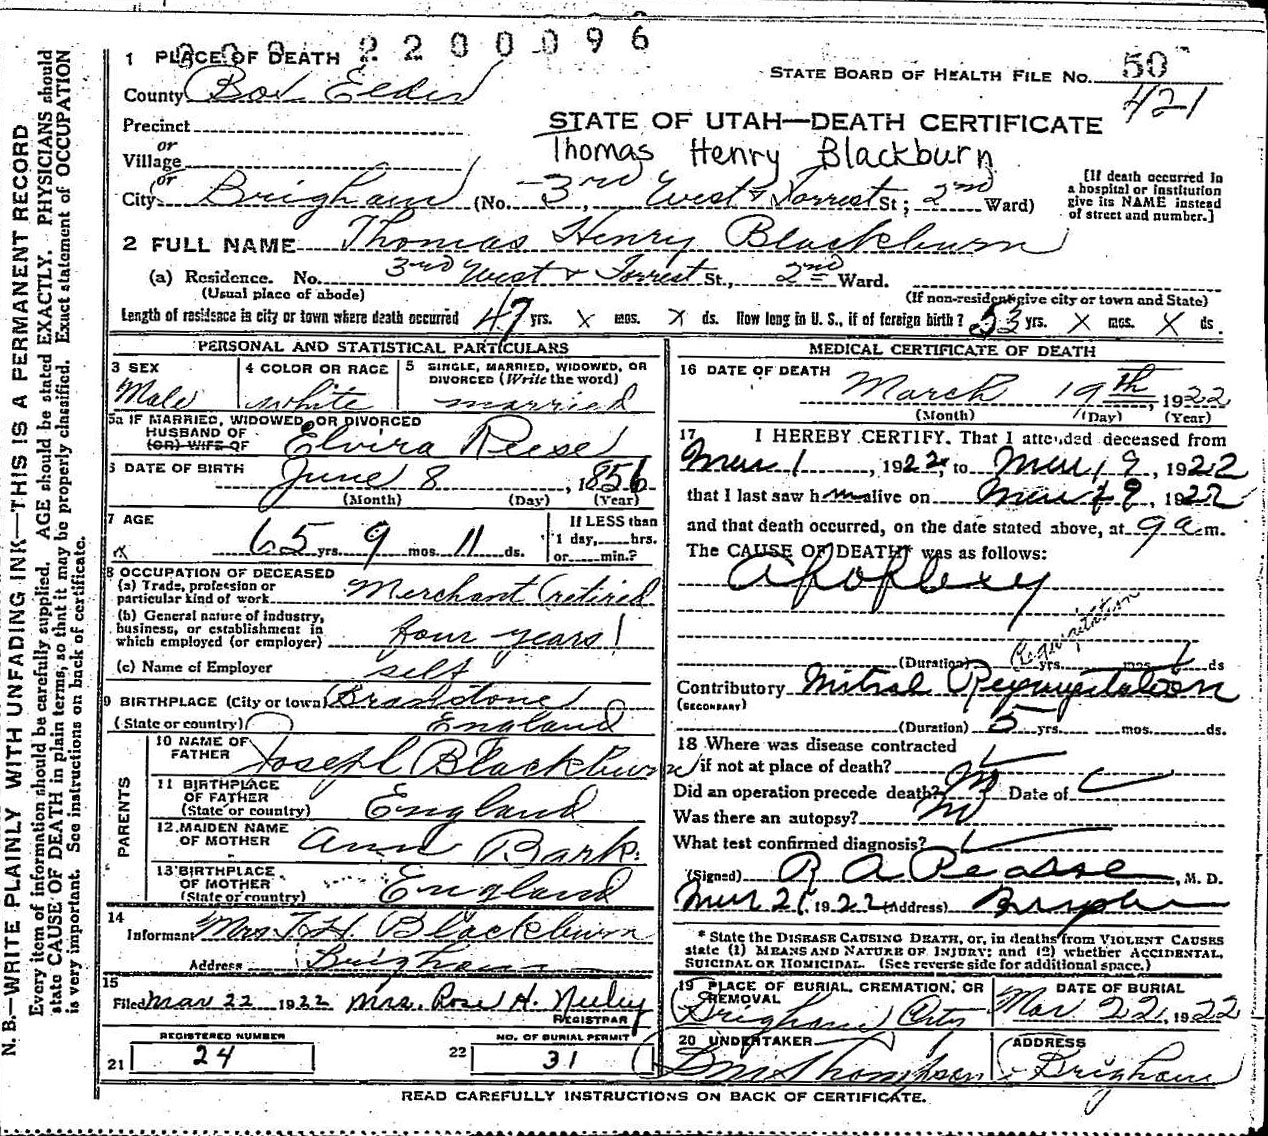 2200096
1 PLACE OF DEATH
STATE BOARD OF HEALTH FILE No. 50
421
County Box Elder
Precinct
or
Village
or
STATE OF UTAH—DEATH CERTIFICATE
Thomas Henry Blackburn
[If death occurred in a hospital or institution give its NAME instead of street and number.]
City Brigham (No. 3rd West & Forrest St; 2nd Ward)
2 FULL NAME Thomas Henry Blackburn
(a) Residence. No. 3rd West & Forrest St., 2nd Ward.
(Usual place of abode) (If non-resident give city or town and State)
Length of residence in city or town where death occurred 47 yrs. X mos. X ds. How long in U. S., if of foreign birth? 53 yrs. X mos. X ds.
PERSONAL AND STATISTICAL PARTICULARS
3 SEX Male
4 COLOR OR RACE white
5 SINGLE, MARRIED, WIDOWED, OR DIVORCED (Write the word) married
5a IF MARRIED, WIDOWED, OR DIVORCED
HUSBAND OF
(OR) WIFE OF Elvira Reese
6 DATE OF BIRTH June 8, 1856
(Month) (Day) (Year)
7 AGE 65 yrs. 9 mos. 11 ds.
If LESS than 1 day, hrs. or min.?
8 OCCUPATION OF DECEASED
(a) Trade, profession or particular kind of work Merchant (retired
(b) General nature of industry, business, or establishment in which employed (or employer) four years)
(c) Name of Employer self
9 BIRTHPLACE (City or town)
(State or country) England
PARENTS
10 NAME OF FATHER Joseph Blackburn
11 BIRTHPLACE OF FATHER (State or country) England
12 MAIDEN NAME OF MOTHER Ann
13 BIRTHPLACE OF MOTHER (State or country) England
14
Informant Mrs. T. H. Blackburn
Address Brigham
15
Filed Mar 22 1922 Mrs. Rose H. Neeley
REGISTRAR
REGISTERED NUMBER
21 24
NO. OF BURIAL PERMIT
22 31
MEDICAL CERTIFICATE OF DEATH
16 DATE OF DEATH
March 19th, 1922
(Month) (Day) (Year)
17 I HEREBY CERTIFY. That I attended deceased from
Mar 1, 1922, to Mar 19, 1922
that I last saw him alive on Mar 19, 1922
and that death occurred, on the date stated above, at 9 a m.
The CAUSE OF DEATH* was as follows:
Apoplexy
Regurgitation
(Duration) yrs. mos. 1 ds
Contributory Mitral Regurgitation
(SECONDARY)
(Duration) 5 yrs. mos. ds.
18 Where was disease contracted
if not at place of death?
Did an operation precede death? Date of
Was there an autopsy?
What test confirmed diagnosis?
(Signed) R A Pearse, M. D.
Mar 21, 1922 (Address) Brigham
* State the DISEASE CAUSING DEATH, or, in deaths from VIOLENT CAUSES
state (1) MEANS AND NATURE OF INJURY; and (2) whether ACCIDENTAL,
SUICIDAL OR HOMICIDAL. (See reverse side for additional space.)
19 PLACE OF BURIAL, CREMATION, OR REMOVAL
Brigham City
DATE OF BURIAL
Mar 22, 1922
20 UNDERTAKER
Thompson
ADDRESS
Brigham
READ CAREFULLY INSTRUCTIONS ON BACK OF CERTIFICATE.
N. B.—WRITE PLAINLY WITH UNFADING INK—THIS IS A PERMANENT RECORD
Every item of information should be carefully supplied. AGE should be stated EXACTLY. PHYSICIANS should
state CAUSE OF DEATH in plain terms, so that it may be properly classified. Exact statement of OCCUPATION
is very important. See instructions on back of certificate.